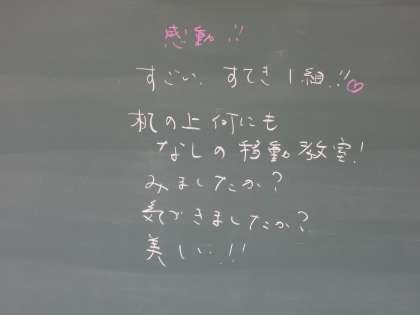 感動!!
すごい、すてき1組!!♡
机の上何にも
なしの移動教室!
みましたか?
気づきましたか?
美しい!!